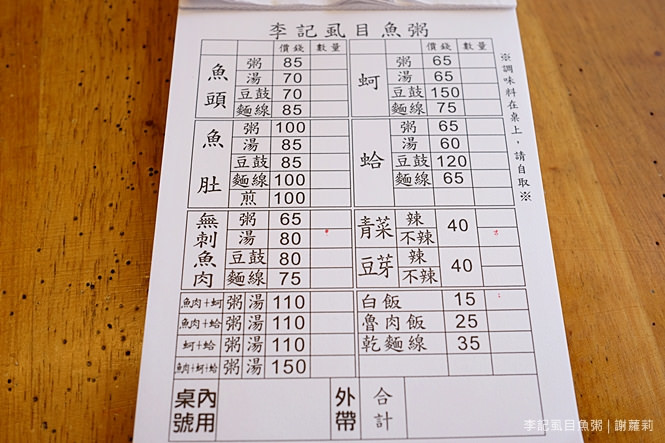 李記虱目魚粥
價錢 數量
魚頭
粥 85
湯 70
豆鼓 70
麵線 85
魚肚
粥 100
湯 85
豆鼓 85
麵線 100
煎 100
無刺魚肉
粥 65
湯 80
豆鼓 80
麵線 75
魚肉+蚵 粥 湯 110
魚肉+蛤 粥 湯 110
蚵+蛤 粥 湯 110
魚肉+蚵+蛤 粥 湯 150
價錢 數量
蚵
粥 65
湯 65
豆鼓 150
麵線 75
蛤
粥 65
湯 60
豆鼓 120
麵線 65
青菜 辣 不辣 40
豆芽 辣 不辣 40
白飯 15
魯肉飯 25
乾麵線 35
內用桌號
外帶
合計
※調味料在桌上,請自取※
李記虱目魚粥 | 謝蘿莉